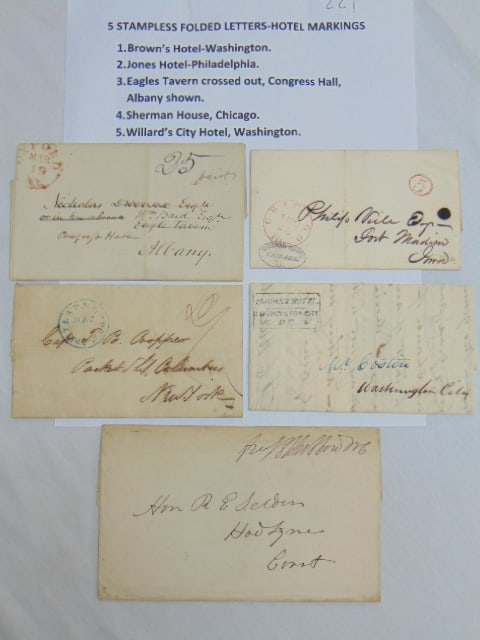 5 STAMPLESS FOLDED LETTERS-HOTEL MARKINGS
1.Brown's Hotel-Washington.
2.Jones Hotel-Philadelphia.
3.Eagles Tavern crossed out, Congress Hall,
Albany shown.
4.Sherman House, Chicago.
5.Willard's City Hotel, Washington.
MAR
19
25
paid
Nicholas Esqr
Wm Baird Esqr
Eagle Tavern
Congress Hall
Albany.
5
CHICAGO
Philip Viele Esq
Fort Madison
Iowa
CHICAGO
Capt B.
Packet Ship Columbus
New York
BROWN'S HOTEL
WASHINGTON CITY
D. C.
Mr. Costin
Washington City
Hon R E Selden
Hadlyme
Connt